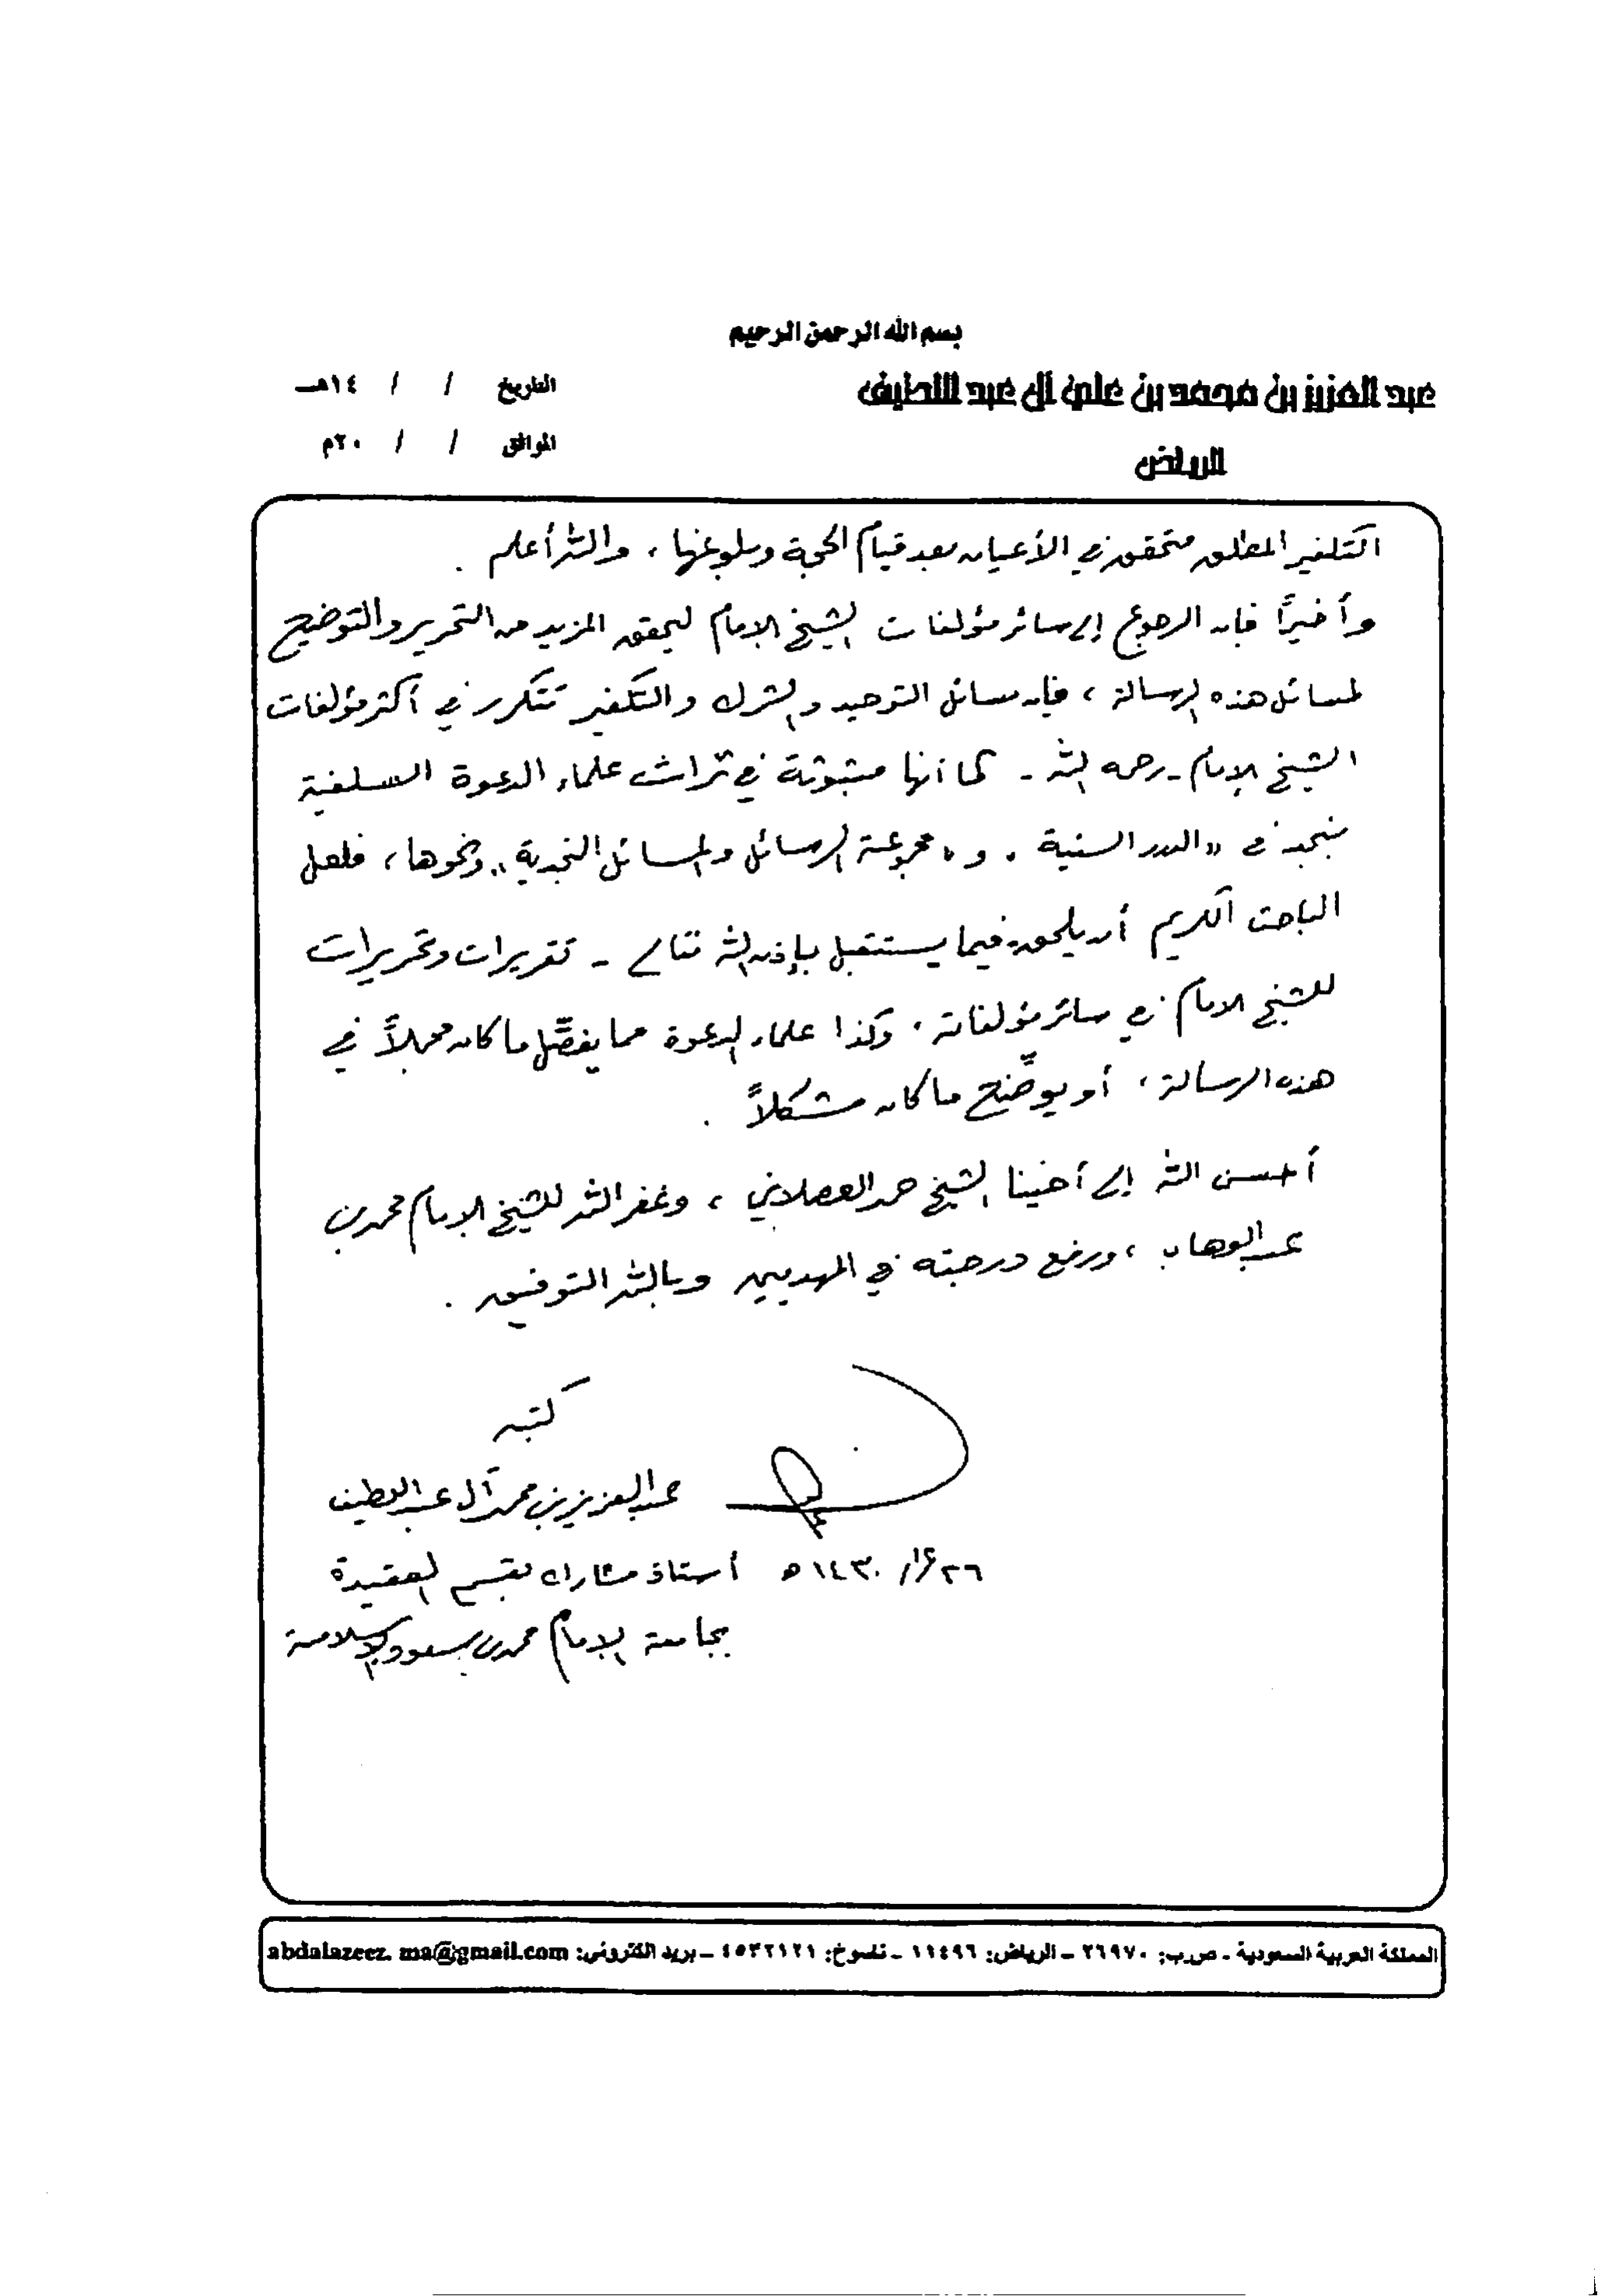 بسم الله الرحمن الرحيم
عبد العزيز بن محمد بن علي آل عبد اللطيف
الرياض
التاريخ / / ١٤هـ
الموافق / / ٢٠م
التكفير المطلق متحقق في الأعيان بعد قيام الحجة وبلوغها، والله أعلم .
وأخيرًا فإن الرجوع إلى سائر مؤلفات الشيخ الإمام ليحقق المزيد من التحرير والتوضيح
لمسائل هذه الرسالة، فإن مسائل التوحيد والشرك والتكفير تتكرر في أكثر مؤلفات
الشيخ الإمام - رحمه الله - كما أنها مبثوثة في تراث علماء الدعوة السلفية
بنجد في «الدرر السنية» و«مجموعة الرسائل والمسائل النجدية» ونحوها، فلعل
الباحث الكريم أن يلحق فيما يستقبل بإذن الله تعالى - تقريرات وتحريرات
للشيخ الإمام في سائر مؤلفاته، وكذا علماء الدعوة مما يفصّل ما كان مجملاً في
هذه الرسالة، أو يوضّح ما كان مشكلاً .
أحسن الله إلى أخينا الشيخ حمد العصلاني، وغفر الله للشيخ الإمام محمد بن
عبد الوهاب، ورفع درجته في المهديين وبالله التوفيق .
كتبه
عبد العزيز بن محمد آل عبد اللطيف
١٤٣٠هـ أستاذ مشارك بقسم العقيدة
بجامعة الإمام محمد بن سعود الإسلامية
المملكة العربية السعودية - ص.ب: ٢٦٩٧٠ - الرياض: ١١٤٩٦ - ناسوخ: ٤٥٣٢١٢١ - بريد الكتروني: abdalazeez. ma@gmail.com